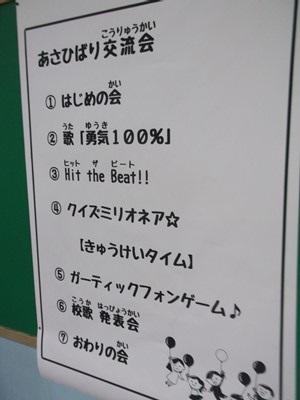 こうりゅうかい
あさひばり交流会
かい
① はじめの会
うた ゆうき
② 歌「勇気１００％」
ヒット ザ ビート
③ Hit the Beat!!
④ クイズミリオネア☆
【きゅうけいタイム】
⑤ ガーティックフォンゲーム♪
こうか はっぴょうかい
⑥ 校歌 発表会
かい
⑦ おわりの会